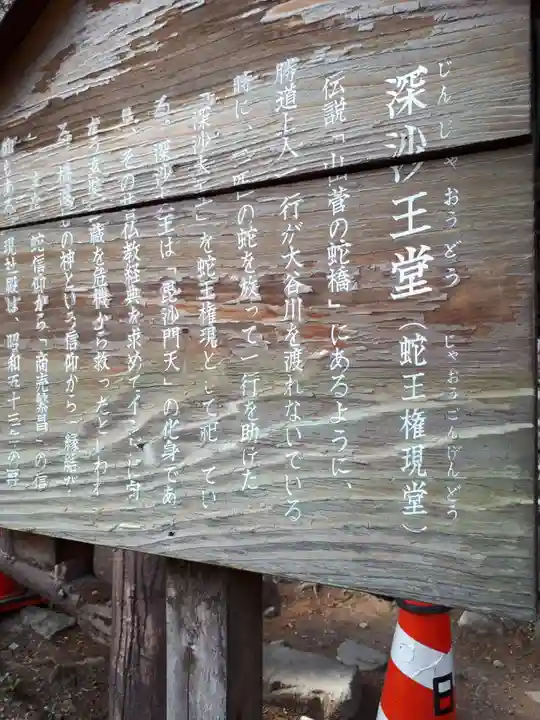 じんじゃおうどう
深沙王堂（蛇王権現堂）
じゃおうごんげんどう
伝説「山菅の蛇橋」にあるように、
勝道上人一行が大谷川を渡れないでいる
時に、二匹の蛇を放って一行を助けた
「深沙大王」を蛇王権現として祀ってい
る。深沙大王は「毘沙門天」の化身であ
り、その昔仏教経典を求めてインドに向
三蔵を危機から救ったといわれ
る。橋渡しの神という信仰から「縁結び」
また、蛇信仰から「商売繁昌」の信
仰もある。現社殿は、昭和五十三年の再